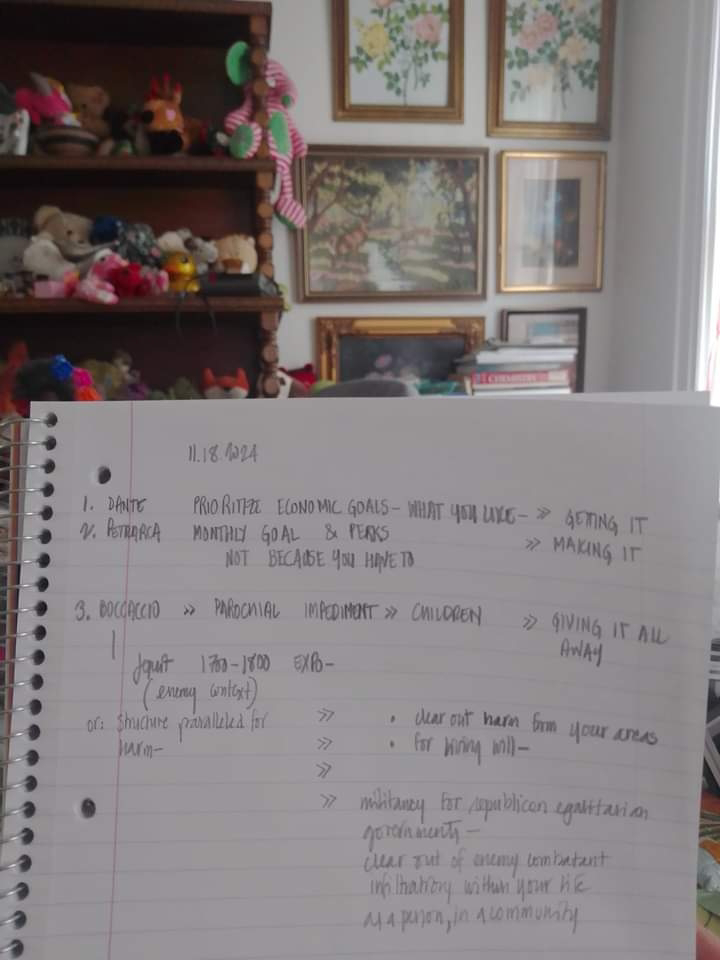 11.18.2024
1. DANTE PRIORITIZE ECONOMIC GOALS - WHAT YOU LIKE - » GETTING IT
2. PETRARCA MONTHLY GOAL & PERKS » MAKING IT
NOT BECAUSE YOU HAVE TO
3. BOCCACCIO » PAROCHIAL IMPEDIMENT » CHILDREN » GIVING IT ALL
AWAY
1700-1800 EXPO-
(enemy context)
or: structure paralleled for » • clear out harm from your areas
harm- » • for living well-
»
» militancy for republican egalitarian
governments -
clear out of enemy combatant
within your life
as a person, in a community